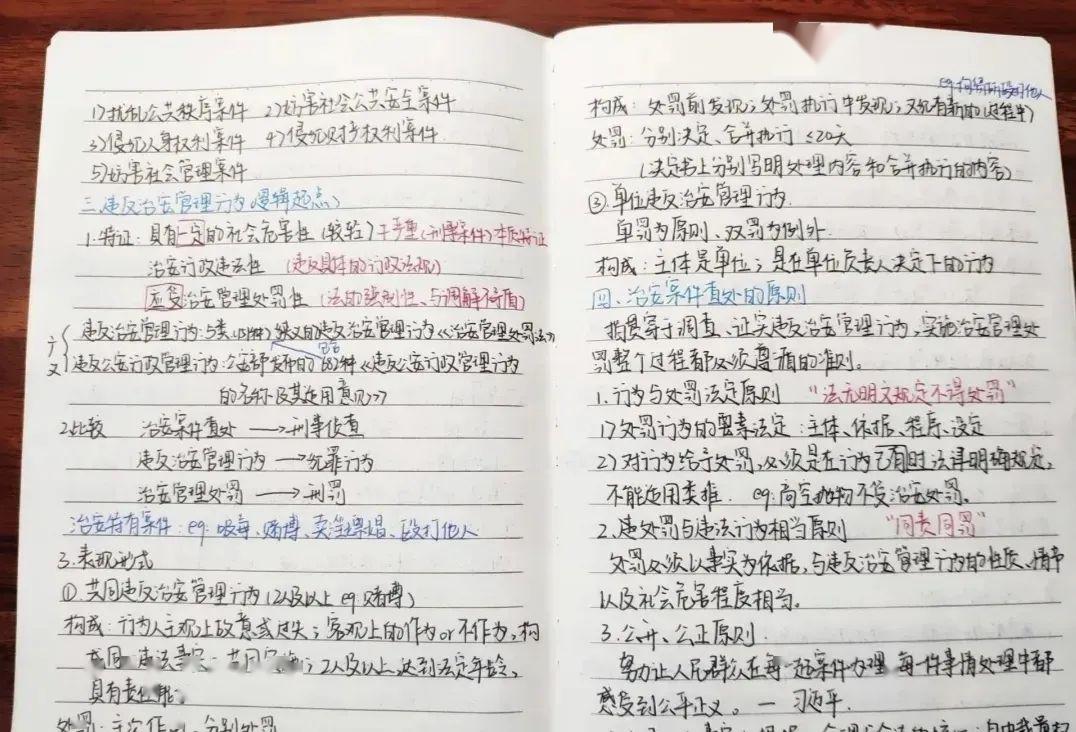 1)扰乱公共秩序案件 2)妨害社会公共安全案件
3)侵犯人身权利案件 4)侵犯财产权利案件
5)妨害社会管理案件
三.违反治安管理行为(逻辑起点)
1.特征：具有一定的社会危害性(较轻)→严重(刑事案件)本质特征
治安行政违法性 (违反具体的行政法规)
应受治安管理处罚性 (法的强制性、与调解不矛盾)
广义
违反治安管理行为：5类 狭义的违反治安管理行为《治安管理处罚法》
包含
违反公安行政管理行为：公安部发布的 种《违反公安行政管理行为
的名称及其适用意见》
2.比较 治安案件查处→刑事侦查
违反治安管理行为→犯罪行为
治安管理处罚→刑罚
治安特有案件：eg.吸毒、赌博、卖淫嫖娼、殴打他人
3.表现形式
①共同违反治安管理行为(2人及以上 eg.赌博)
构成：行为人主观上故意或过失；客观上的作为or不作为，构
成同一违法事实 共同 ；2人及以上，达到法定年龄、
具有责任能
处罚：主次作 、分别处罚
eg. 殴打他人
构成：处罚前发现；处罚执行中发现；又犯有新的(过程中)
处罚：分别决定、合并执行 ≤20天
(决定书上分别写明处理内容和合并执行的内容)
③单位违反治安管理行为.
单罚为原则、双罚为例外.
构成：主体是单位；是在单位负责人决定下的行为
四、治安案件查处的原则
指贯穿于调查、证实违反治安管理行为，实施治安管理处
罚整个过程都必须遵循的准则.
1.行为与处罚法定原则 "法无明文规定不得处罚"
1)处罚行为的要素法定：主体、依据、程序、设定
2)对行为给予处罚，必须是在行为已有时法律明确规定，
不能适用类推. eg.高空抛物不受治安处罚。
2.违处罚与违法行为相当原则 "同责同罚"
处罚必须以事实为依据，与违反治安管理行为的性质、情节
以及社会危害程度相当。
3.公开、公正原则.
努力让人民群众在每一起案件办理、每一件事情处理中都
感受到公平正义。— 习近平.